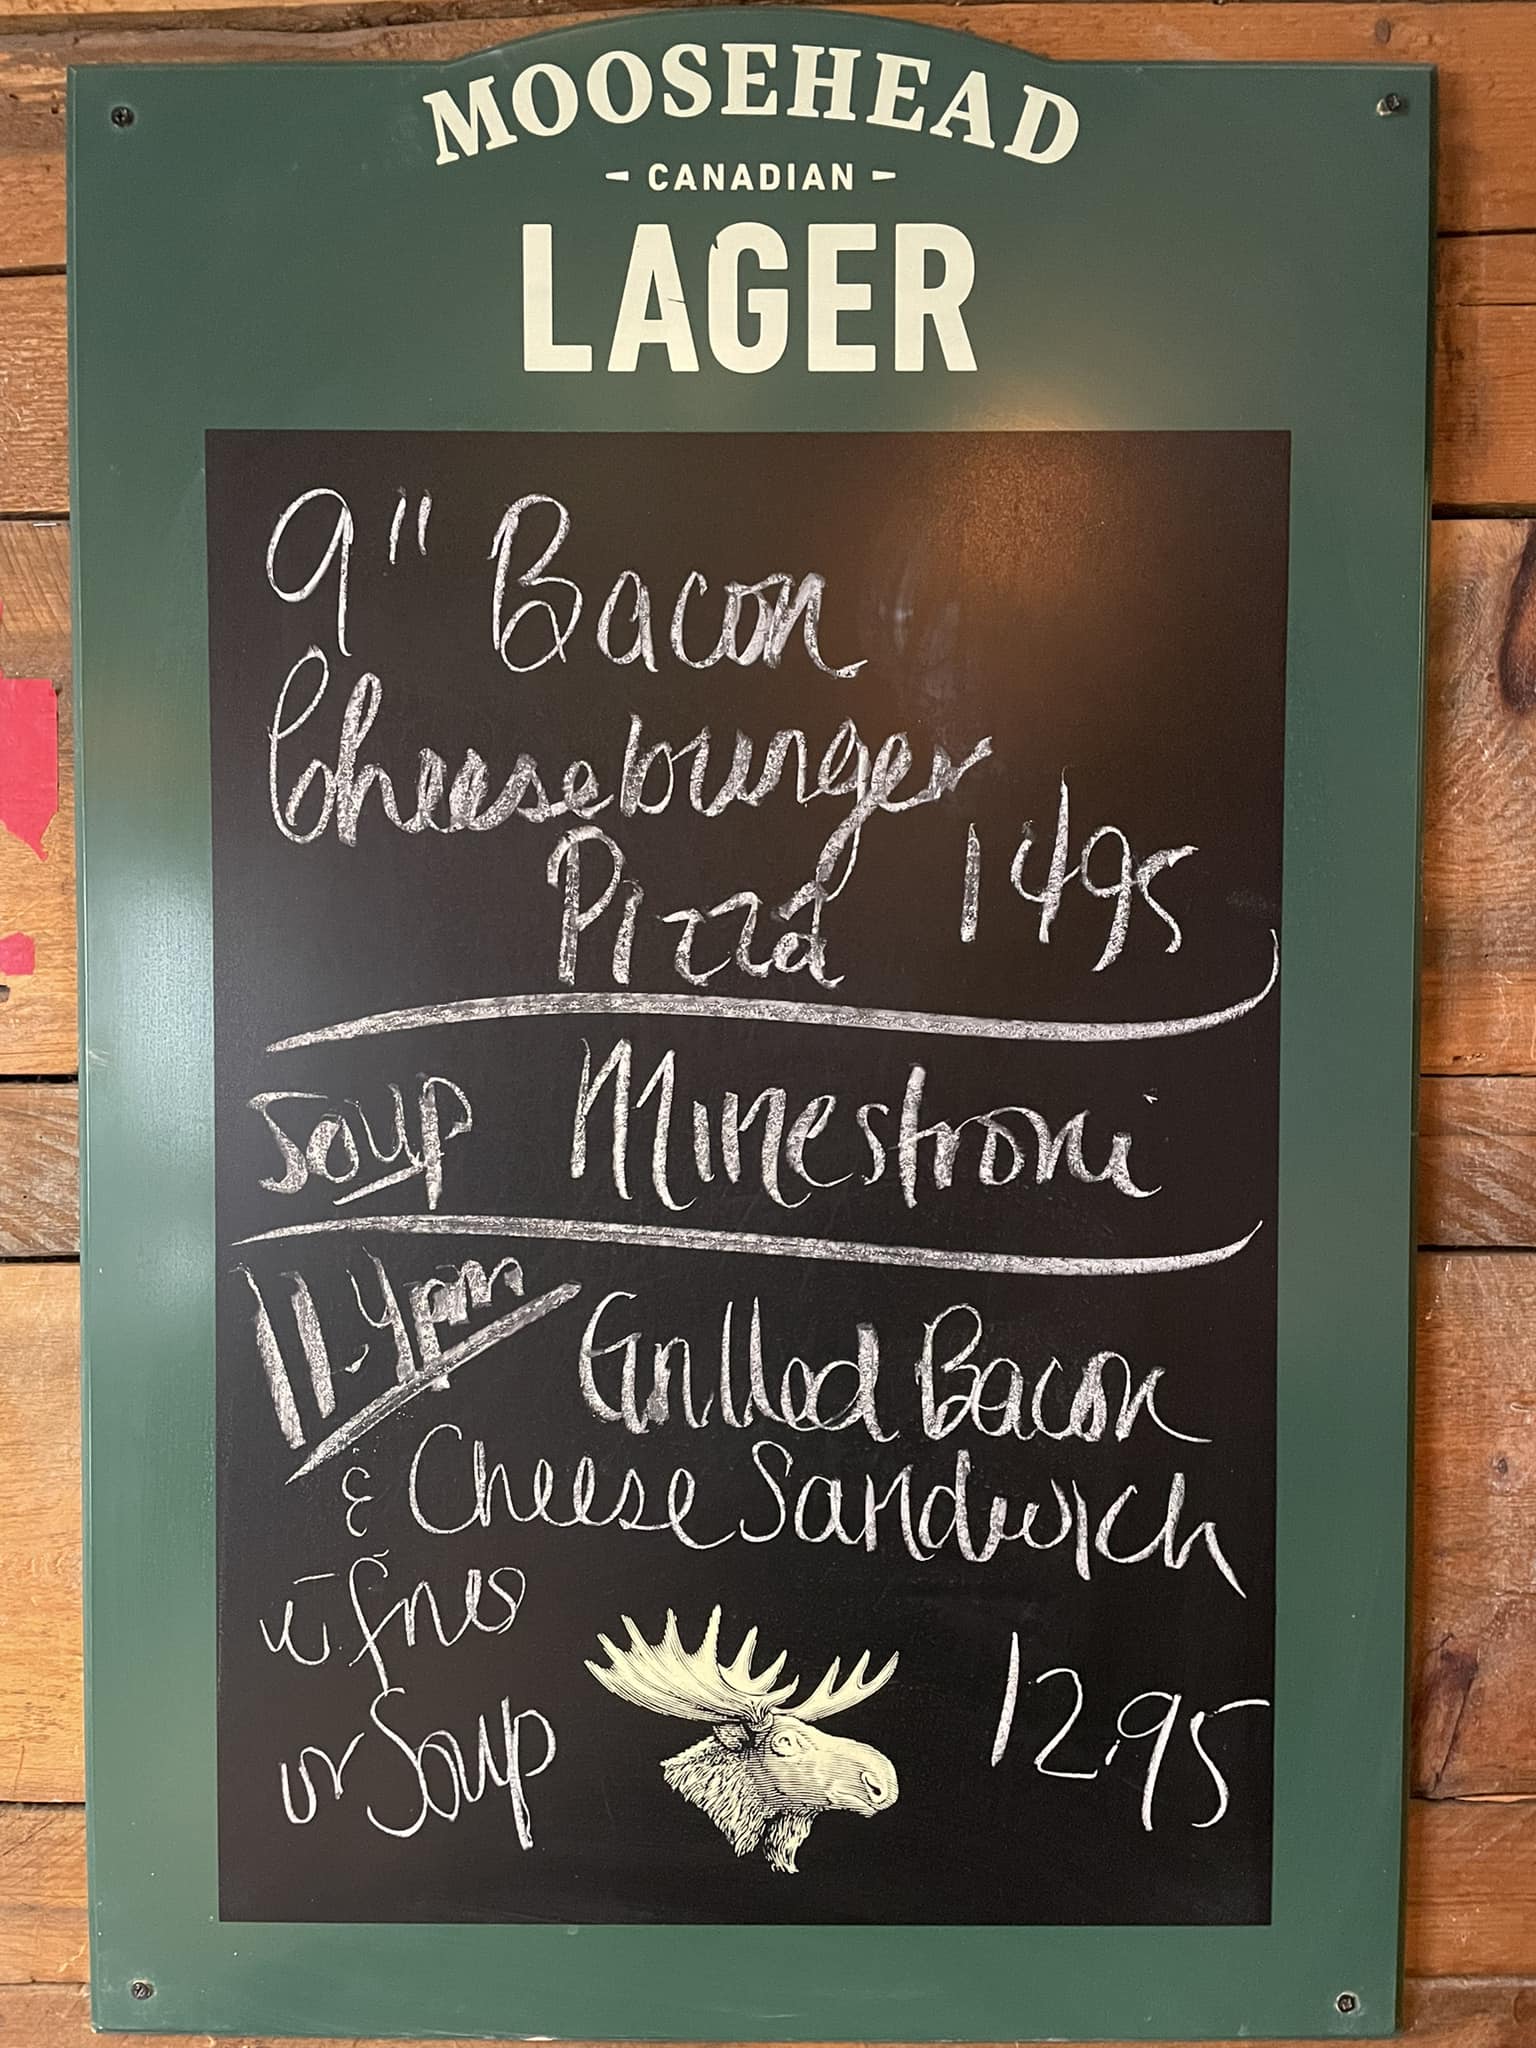 MOOSEHEAD
- CANADIAN -
LAGER
9" Bacon
Cheeseburger
Pizza 1495
Soup Minestroni
11-4pm Grilled Bacon
& Cheese Sandwich
c̄ fries
or Soup 12.95